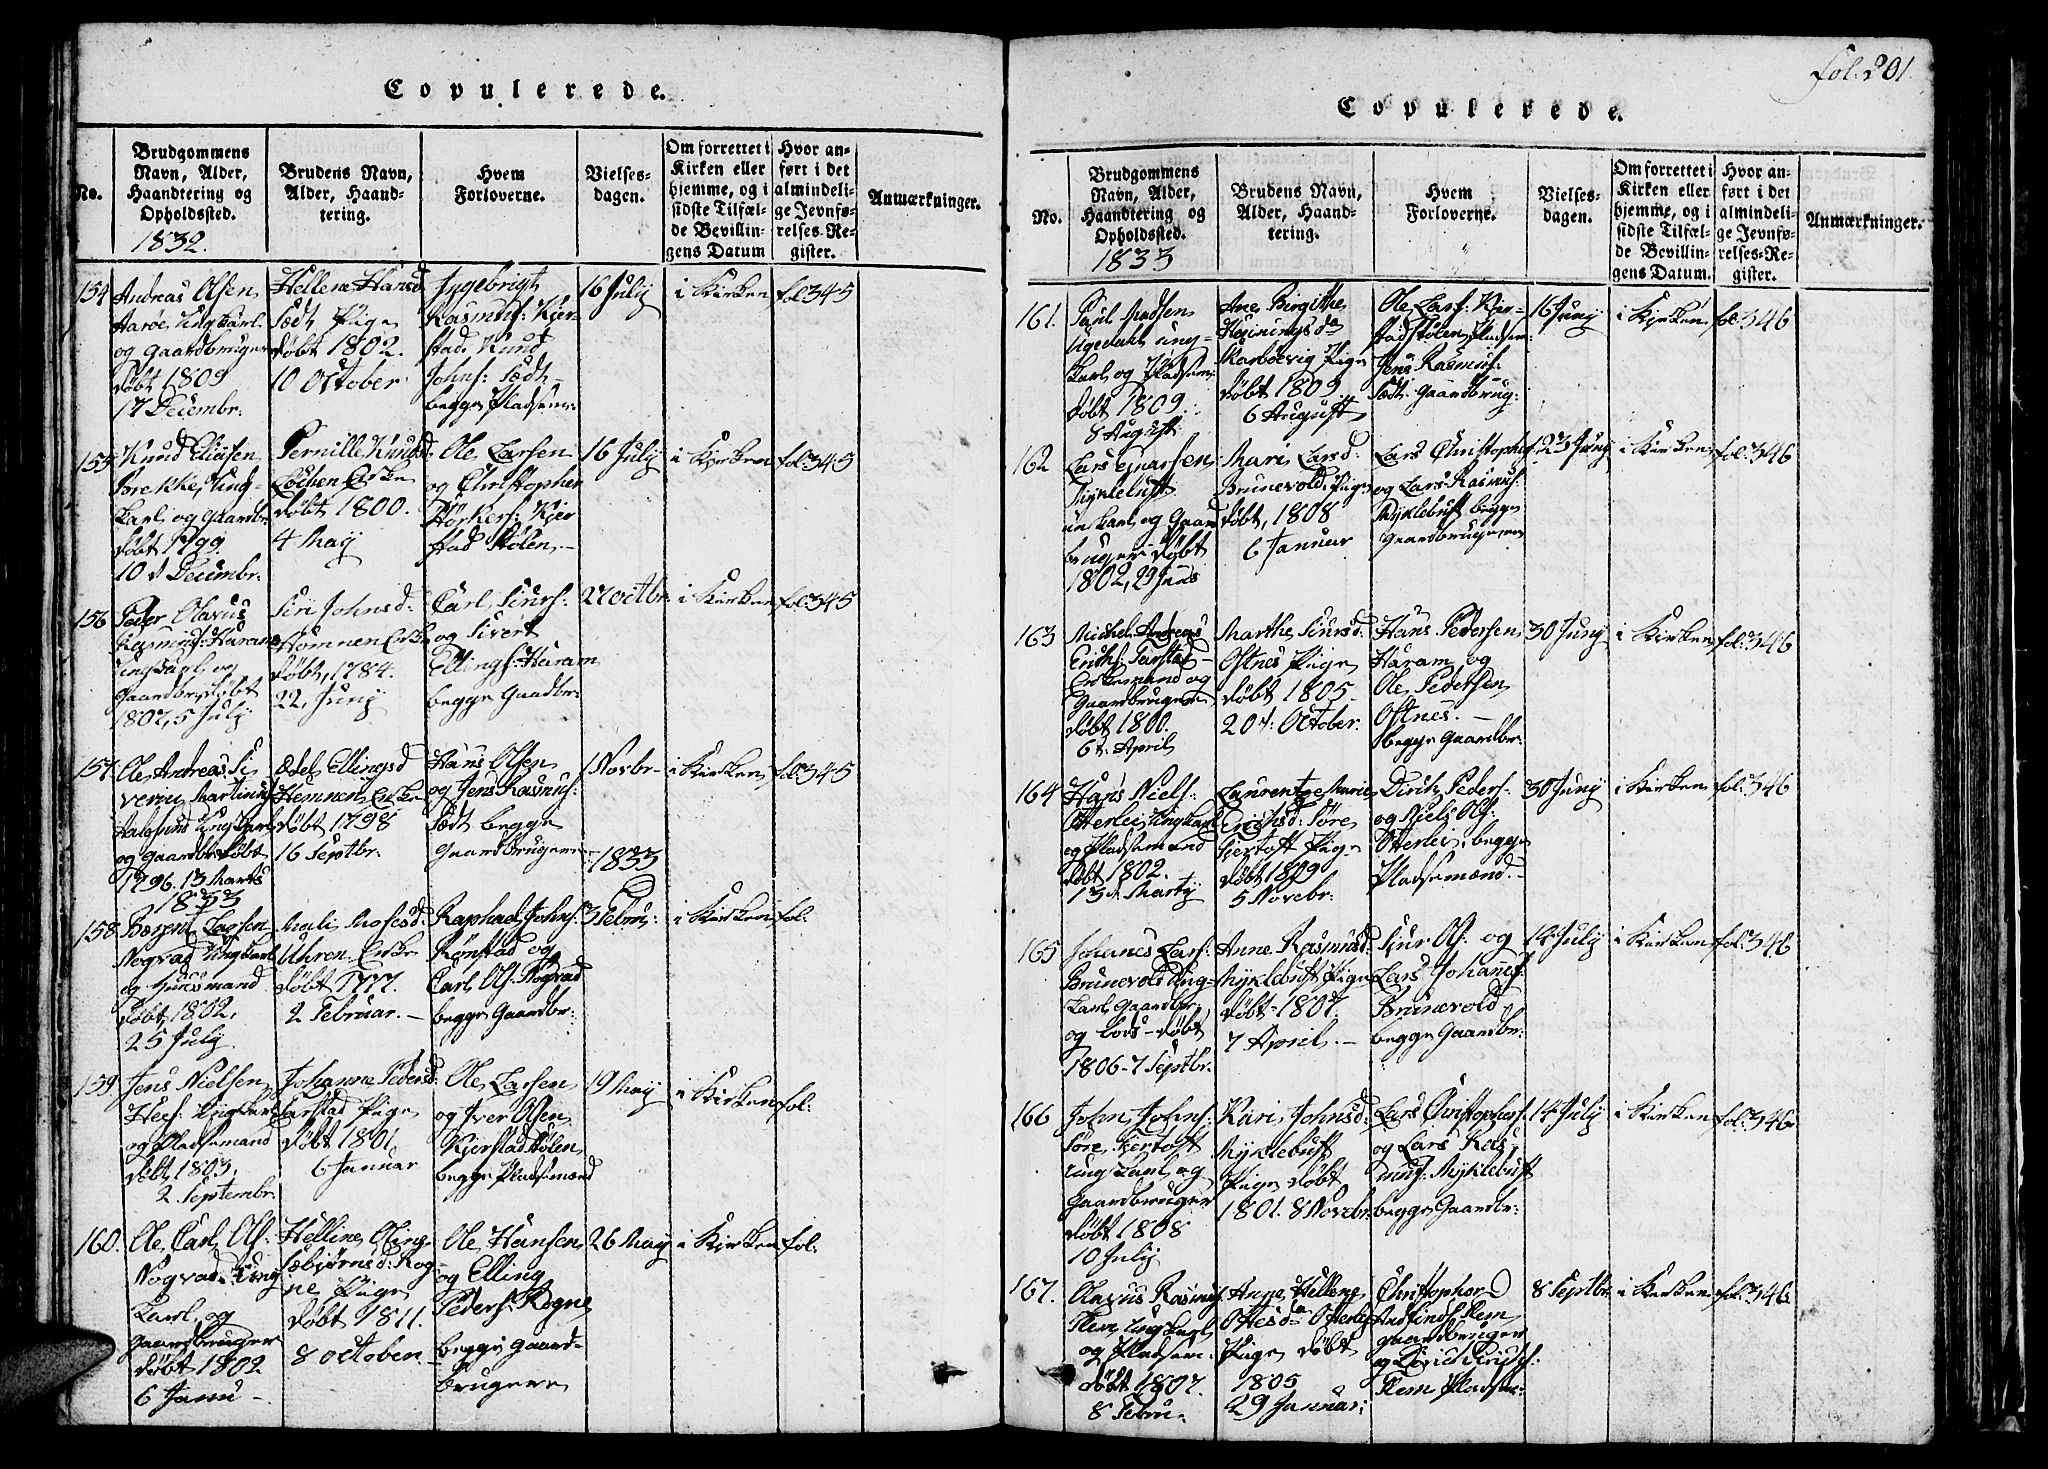 Copulerede.
No.
Brudgommens
Navn, Alder,
Haandtering og
Opholdssted.
1832.
Brudens Navn,
Alder, Haand-
tering.
Hvem
Forloverne.
Vielses-
dagen.
Om forrettet i
Kirken eller
hjemme, og i
sidste Tilfæl-
de Bevillin-
gens Datum
Hvor an-
ført i det
almindeli-
ge Jevnfø-
relses-Re-
gister.
Anmærkninger.
154
Andreas Olsen
Aarøe, Ungkarl.
og Gaardbruger
døbt 1809
17 Decembr.
Hellene Hansd
Sædt Pige
døbt 1802.
10 October.
Ingebrigt
Rasmus: Kjer-
stad. Knud
Johns: Sædt
begge Pladsem:
16 July
i Kirken
fol 345
155
Knud Eliasen
Brekke, Ung-
karl og Gaardbr.
døbt 1799
10 d Decembr.
Pernille Knudsd:
Enke
døbt 1800.
4 May
Ole Larsen
og Christopher
Kjer
stad Stølen.
16 July
i Kirken
fol 345
156
Peder Olavus
Rasmus: Haram
Ungkarl og
Gaardbr. døbt
1807, 5 July
Siri Johnsd:
Hamnen Enke
døbt, 1784.
22, Juny
Carl Siurs:
og Sivert
Ellings: Haram
begge Gaadbr:
2 Octbr:
i Kirken
fol 345
157
Ole Andreas Si
verin Martinus
Ungkarl
og Gaardbr. døbt
1796. 13 Marts
1833
Ædel Ellingsd
Hemnen Enke
døbt 1798
16 Septbr.
Hans Olsen
og Jens Rasmus:
Sædt begge
Gaardbrugere
1 Novbr
i Kirken
fol 345
1833
158
Larsen
Nogvad Ungkarl
og Huusmand
døbt, 1802.
25 July
Mali Mosesd:
Uhren Enke
døbt 1777.
2 Februar.
Raphael Johns:
Rønstad og
Carl Ols: Nogvad
begge Gaardbr:
3 Febru:
i Kirken
fol.
159
Jens Nielsen
Ungkarl
og Pladsemand
døbt, 1803.
2 Septembr.
Johanne Pedersd:
Pige
døbt 1801.
6 Januar
Ole Larsen
og Iver Olsen
Kjerstadstølen
begge Pladsemænd
19 May
i Kirken
fol:
160.
Ole Carl Ols:
Nogvad Ung
karl og
Gaardbruger
døbt 1802
6 Janu
Helline Oline
Esebjørnsd: Rog
ne Pige
døbt 1811.
8 october
Ole Hansen
og Elling
Peders: Rogne
begge Gaard-
brugere
26 May
i Kirken
fol:
fol. 201.
Copulerede.
No.
Brudgommens
Navn, Alder,
Haandtering og
Opholdssted.
1833
Brudens Navn,
Alder, Haand-
tering.
Hvem
Forloverne.
Vielses-
dagen.
Om forrettet i
Kirken eller
hjemme, og i
sidste Tilfæl-
de Bevillin-
gens Datum.
Hvor an-
ført i det
almindeli-
ge Jevnfø-
relses-Re-
gister.
Anmærkninger.
161.
Paul Madsen
Ugedahl ung-
karl og Pladsem:
døbt 1809.
8 August
Ane Birgithe
Heiningsda
Skarbøevig Pige
døbt 1809
6 August
Ole Lars: Kjer-
stadstølen Pladsem:
Jens Rasmus:
Sædt: Gaardbrug:
16 Juny
i Kirken
fol 346
162
Lars Ejnarsen
Myklebust
un karl og Gaard
bruger døbt
1802, 29 Juni
Mari Larsd:
Brunevold. Pige
døbt, 1808
6 Januar
Lars Christophers
og Lars Rasmus:
Myklebust begge
Gaardbrugere
23 Juny
i Kirken
fol. 346
163
Michel Andreas
Erichs:
Enkemand og
Gaardbruger
døbt 1800.
6t. April
Marthe Siursd:
Østnes Pige
døbt 1805
20t. October.
Hans Pedersen
Haram og
Ole Pedersen
Østnes.
begge Gaardbr:
30 Juny
i Kirken
fol. 346
164
Hans Niels:
Otterlei, Ungkarl
og Pladsemand
døbt 1802.
13 d. Marty
Laurentze Marie
Erichsd: Søre
Giertoft Pige
døbt 1809
5 Novebr.
Dirik Peders:
og Niels Ols:
Otterlei, begge
Pladsemænd.
30 Juny
i Kirken
fol. 346
165
Johanes Lars:
Brunevold Ung-
karl Gaardbr:
og døbt
1806 - 7 Septbr.
Anne Rasmusd:
Myklebust Pige
døbt 1807.
7 April.
Siur Ols: og
Lars Johanes:
Brunevold
begge Gaardbr:
14 July
i Kirken
fol. 346
166
John Johns:
Søre Giertoft
ung karl og
Gaardbruger
døbt 1808
10 July
Kari Johnsd:
Myklebust
Pige døbt
1801. 8 Novebr.
Lars Christophers:
og Lars Ras-
mus: Myklebust
begge Gaardbr:
14 July
i Kirken
fol. 346
167.
Olavus Rasmus:
Flem ungkarl
og Pladsem:
døbt 1807.
8 Febru.
Anne Hellene
Ottesda Otterlei
Pige døbt
1805
29 Januar;
Christopher
Andfinds: Flem
gaardbruger
og
Flem Pladsem:
8 Septbr.
i Kirken
fol. 346.